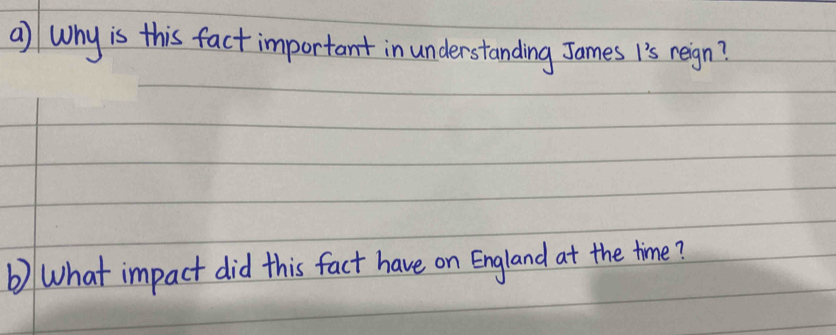 a) Why is this fact important in understanding James 1's reign?
b) What impact did this fact have on England at the time?